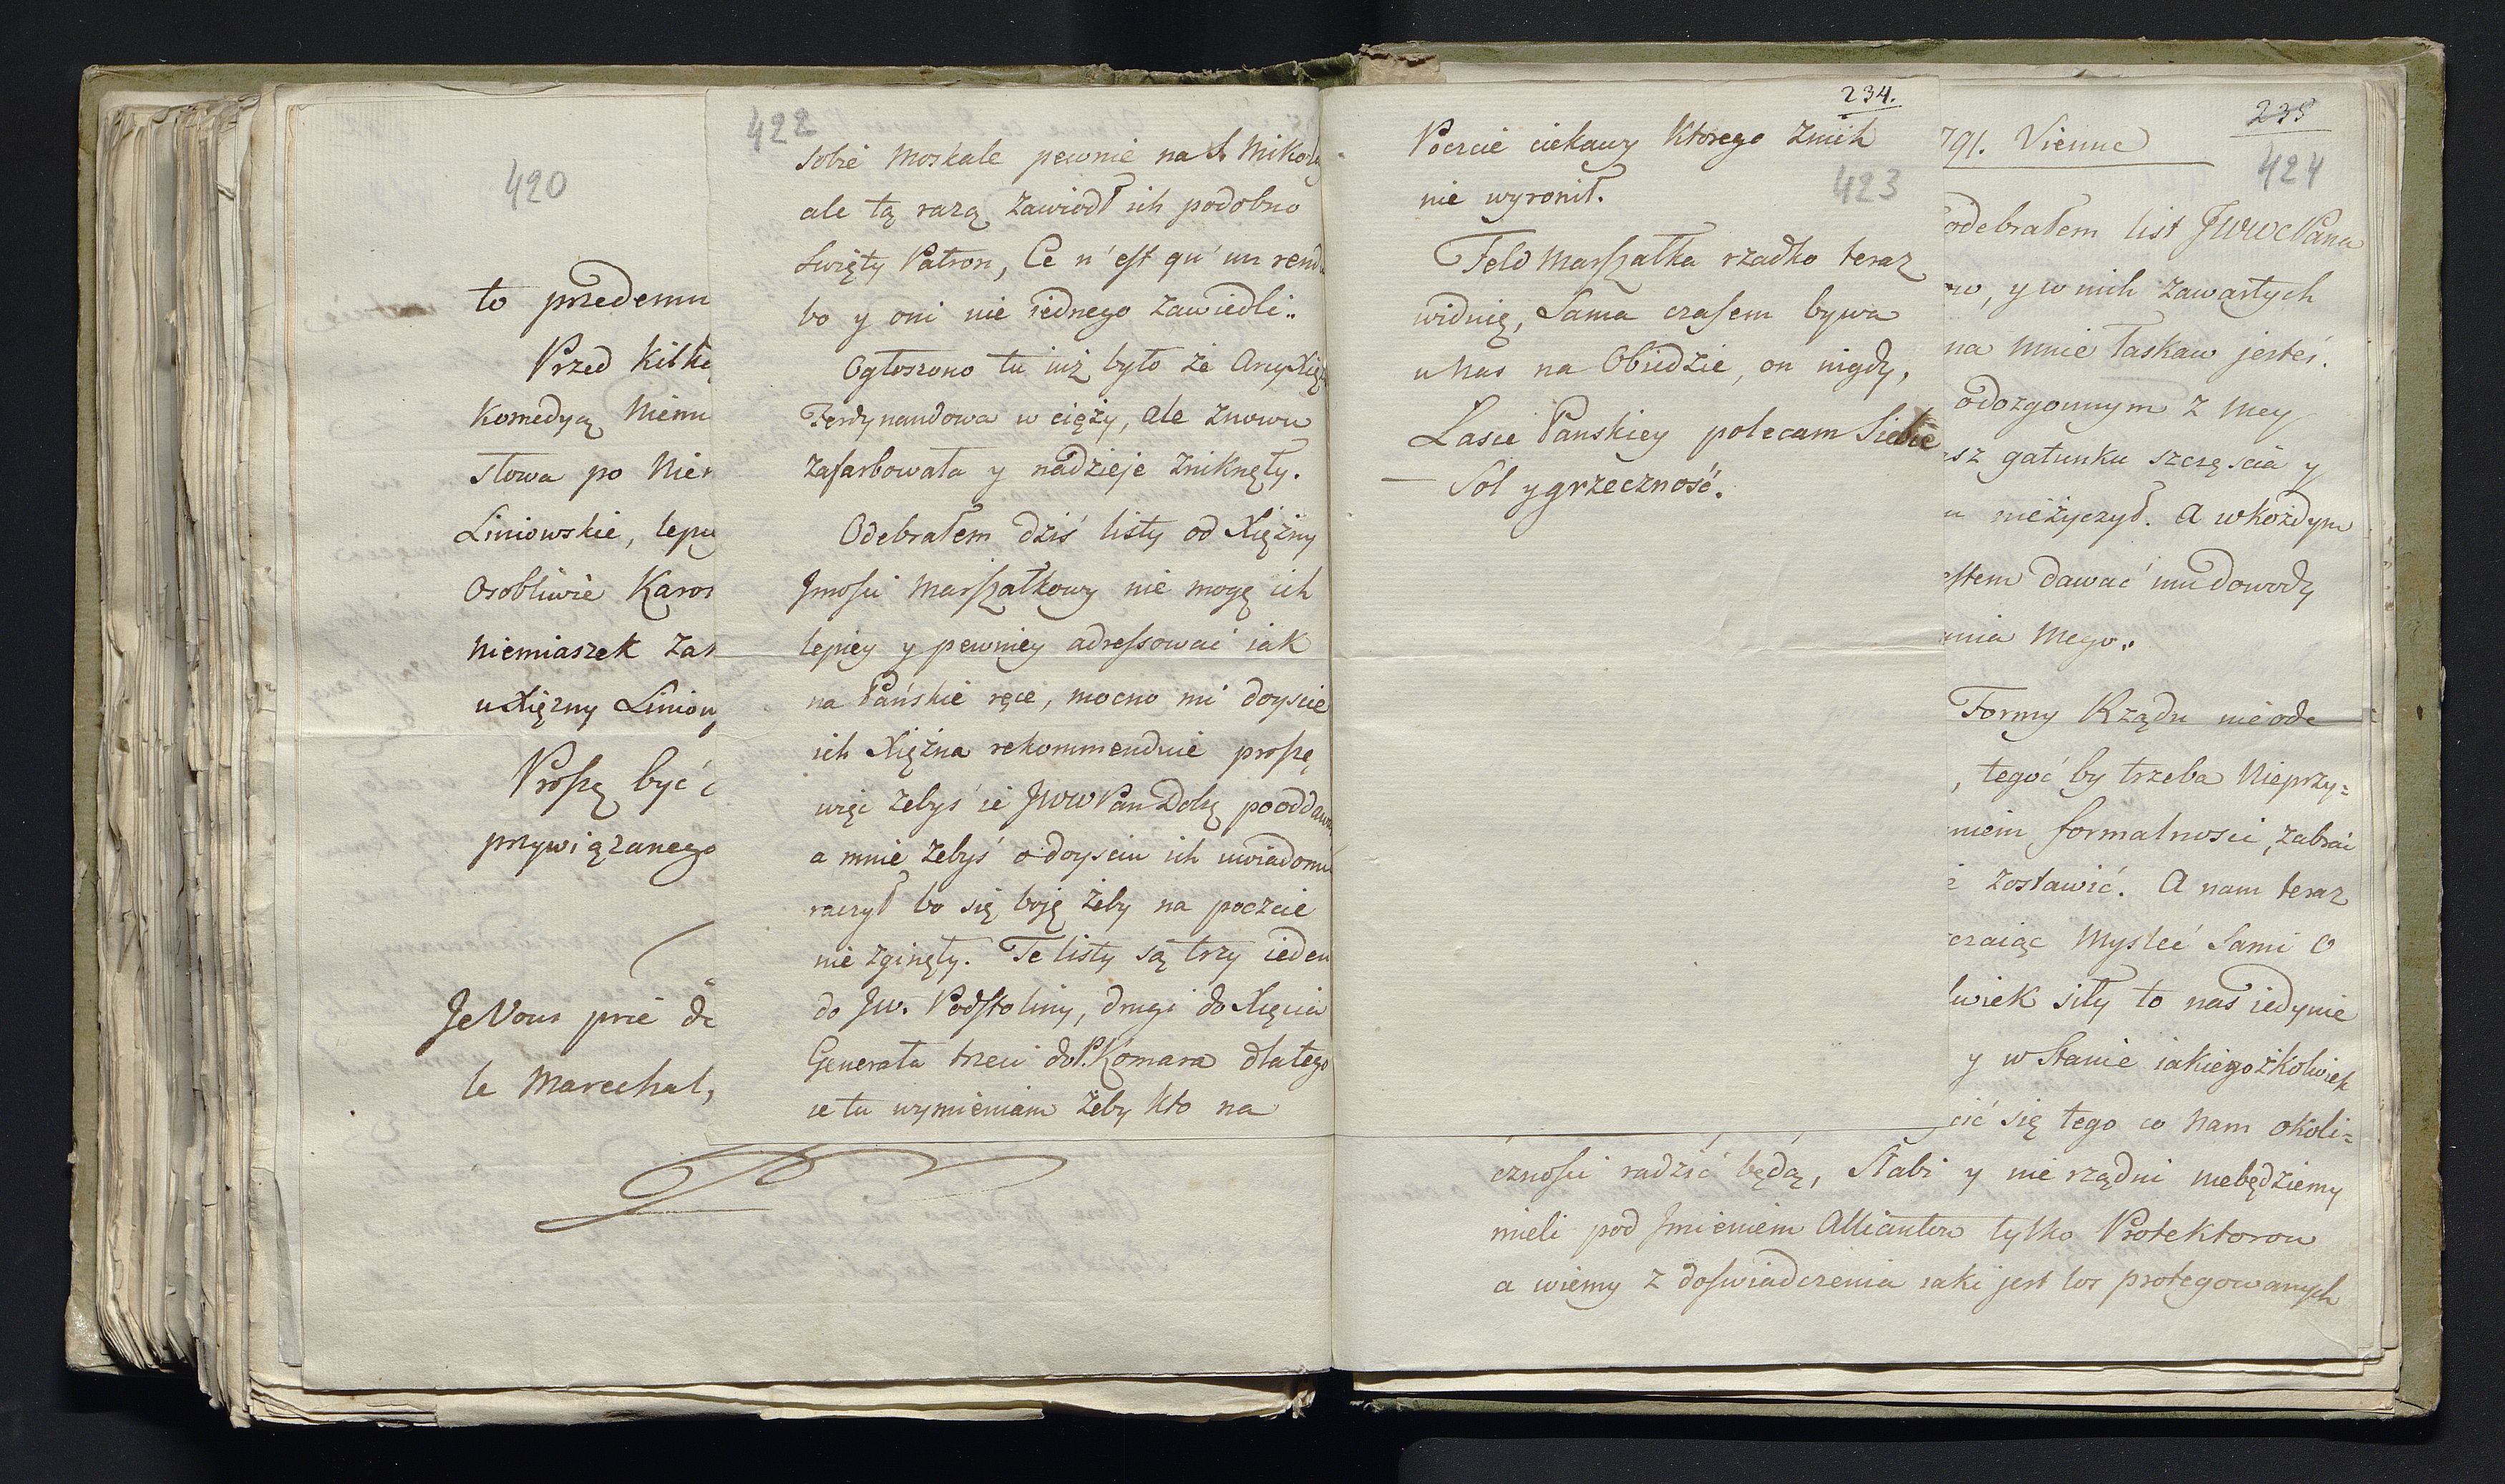 420
to przedemu
Przed kilką
Komedyą Niemi
Słowa po Nie
Liniowskie, lepy
Osobliwie Karos
Niemiaszek Zas
u Xiężny Liniow
Proszę być
przywiązanego
Je Vous prie de
le Marechal,
422
sobie Moskale pewnie na S. Mikoły
ale tą razą zawiodł ich podobno
Swięty Patron, Ce n'est qu'un rend
bo y oni nie iednego zawiedli..
Ogłoszono tu iuż było że Arcy Xię
Ferdynandowa w ciąży, ale znowu
zafarbowała y nadzieje zniknęły.
Odebrałem dziś listy od Xiężny
Jmości Marszałkowy nie mogę ich
lepiey y pewniey adressować iak
na Pańskie ręce, mocno mi doyscie
ich Xiężna rekommenduie proszę
więc żebyś ie JWW Pan Dobr pooddaw
a mnie żebyś o doysciu ich uwiadomi
raczył bo się boję żeby na poczcie
nie zginęły. Te listy są trzy ieden
do Jw. Podstoliny, drugi do Xięcia
Generała trzeci do P. Komara dlatego
ie tu wymieniam żeby kto na
234.
Poczcie ciekawy ktorego z nich
423
nie wyronił.
Feld Marszałka rzadko teraz
widuię, Sama czasem bywa
u Nas na Obiedzie, on nigdy,
Łasce Panskiey polecam Siebie
— Sol y grzeczność.
235
791. Vienne
424
odebrałem list JWWC Pana
ow, y w nich zawartych
na mnie łaskaw jesteś.
odozgonnym z mey
sz gatunku szczęscia y
nieżyczył. A w każdym
estem dawać mu dowody
ania Mego..
Formy Rządu nie ode
, tegoć by trzeba Nieprzy=
niem formalności, zabrać
zostawić. A nam teraz
czaiąc Mysleć Sami O
lwiek siły to nas iedynie
y w Stanie iakiegożkolwiek
cić się tego co Nam okoli=
czności radzić będą, Słabi y nie rządni niebędziemy
mieli pod Jmieniem Alliantow tylko Protektorow
a wiemy z doswiadczenia iaki jest los protegowanych